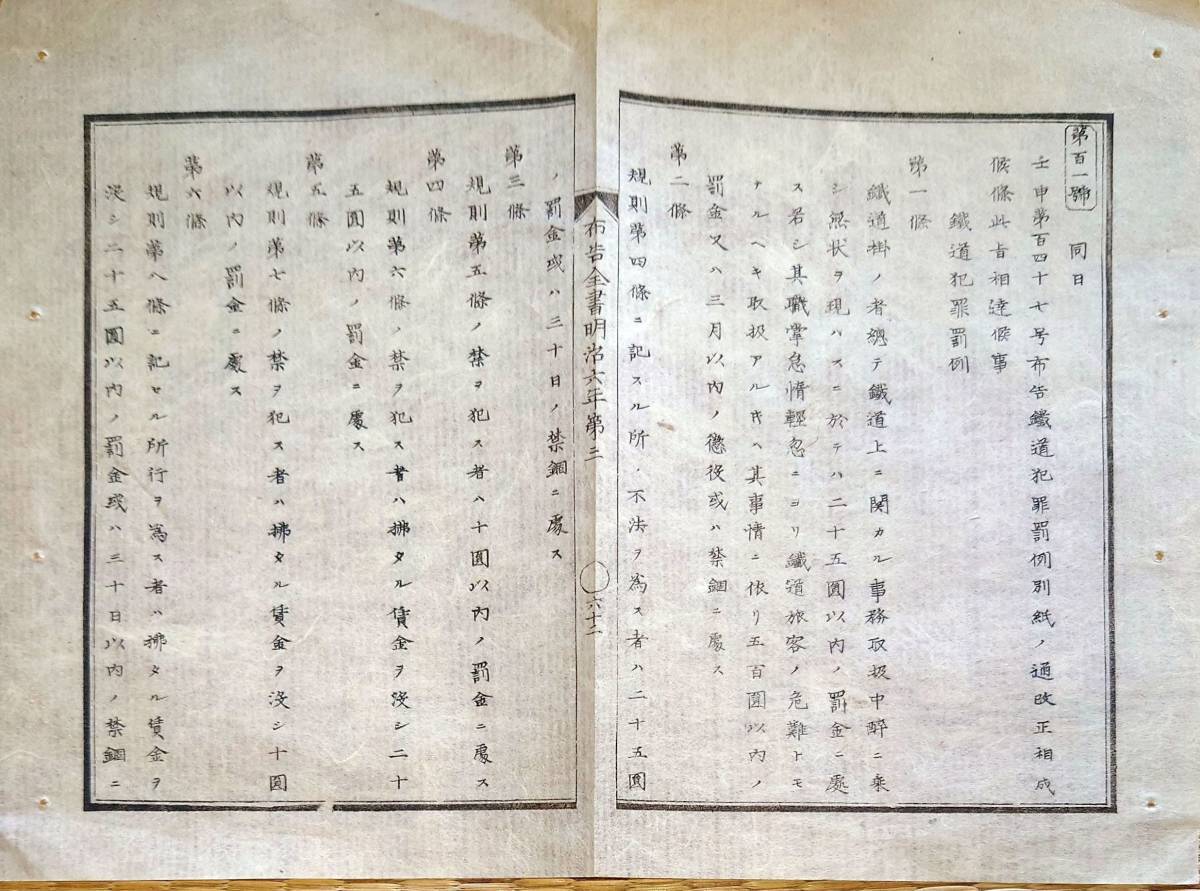 第百一號 同日
壬申第百四十七号布告鐵道犯罪罰例別紙ノ通改正相成
候條此旨相達候事
鐵道犯罪罰例
第一條
鐵道掛ノ者總テ鐵道上ニ関カル事務取扱中醉ニ乘
シ無状ヲ現ハスニ於テハ二十五圓以内ノ罰金ニ處
ス若シ其職掌怠惰輕忽ニヨリ鐵道旅客ノ危難トモ
ナルヘキ取扱アルキハ其事情ニ依リ五百圓以内ノ
罰金又ハ三月以内ノ懲役或ハ禁錮ニ處ス
第二條
規則第四條ニ記スル所ノ不法ヲ為ス者ハ二十五圓
布告全書明治六年第三 〇六十二
ノ罰金或ハ三十日ノ禁錮ニ處ス
第三條
規則第五條ノ禁ヲ犯ス者ハ十圓以内ノ罰金ニ處ス
第四條
規則第六條ノ禁ヲ犯ス者ハ拂タル賃金ヲ沒シ二十
五圓以内ノ罰金ニ處ス
第五條
規則第七條ノ禁ヲ犯ス者ハ拂タル賃金ヲ沒シ十圓
以内ノ罰金ニ處ス
第六條
規則第八條ニ記セル所行ヲ為ス者ハ拂タル賃金ヲ
沒シ二十五圓以内ノ罰金或ハ三十日以内ノ禁錮ニ